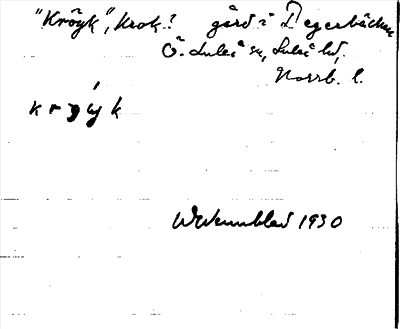 "Kröyk", Krok? gård i Degerbäcken
Ö. Luleå sn, Luleå hd,
Norrb. l.
k r ɔ ý k
W Wennblad 1930